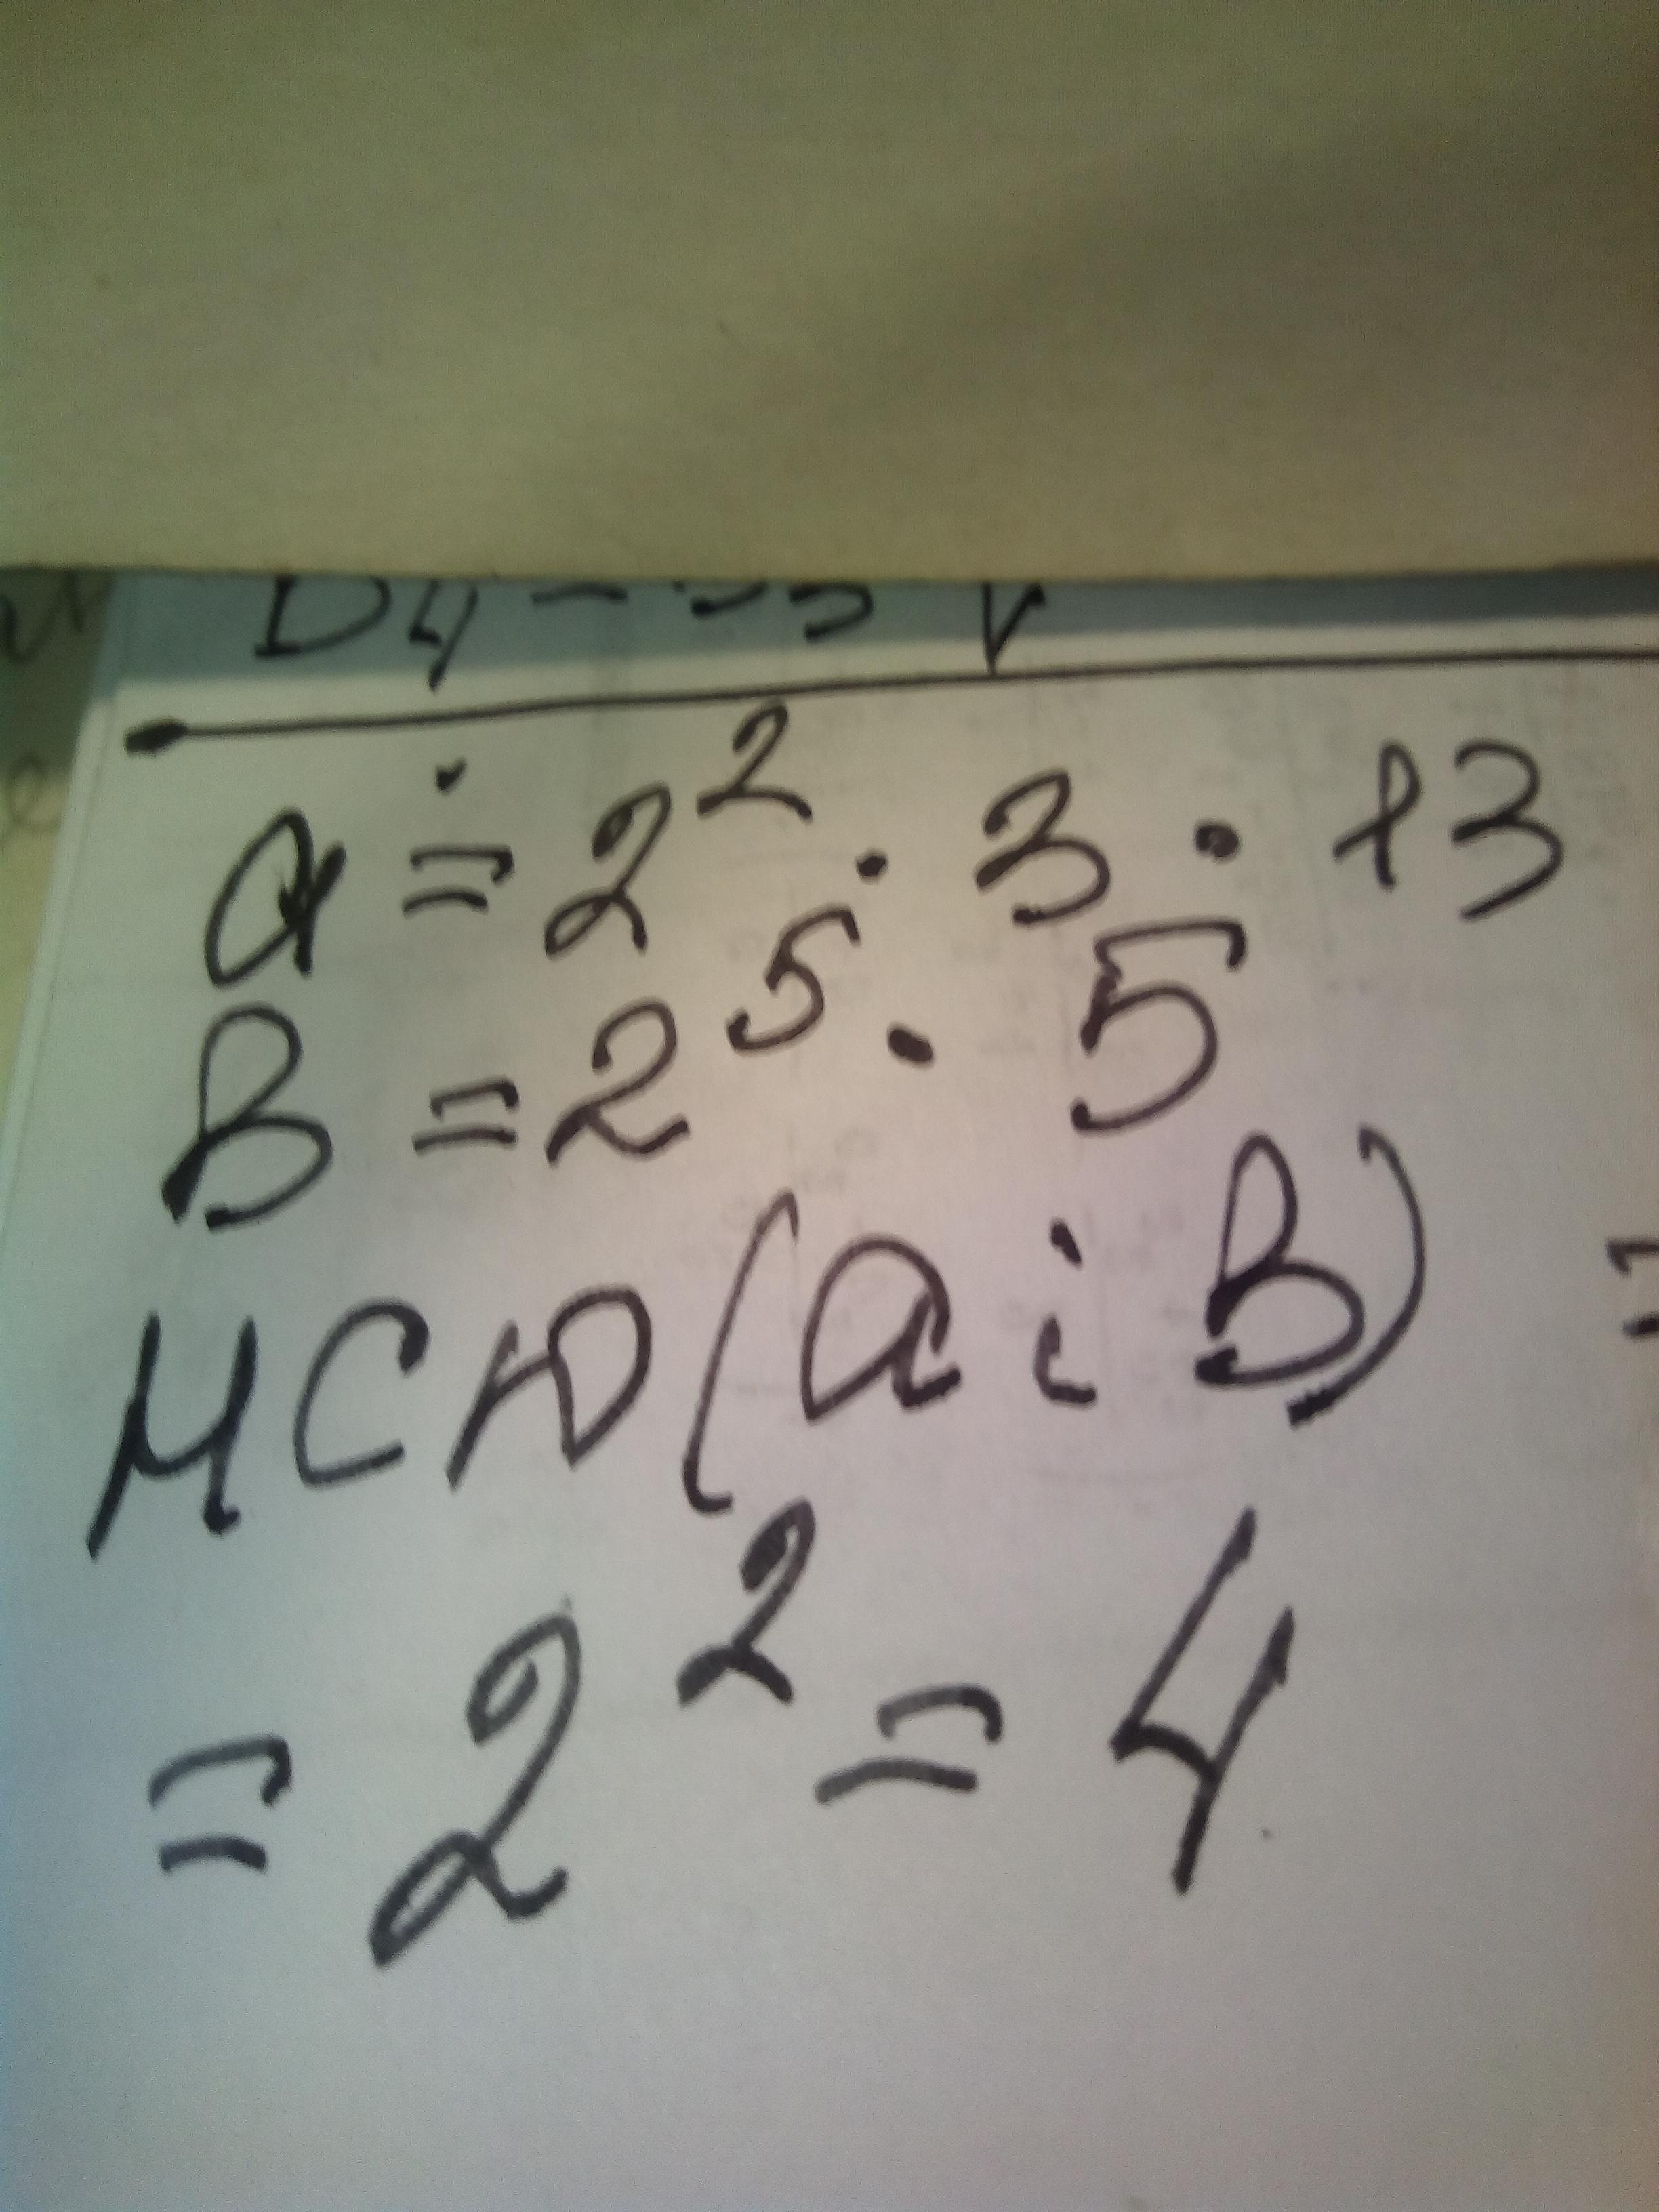 a = 2² · 3 · 13
B = 2⁵ · 5
MCD (a i B) =
= 2² = 4